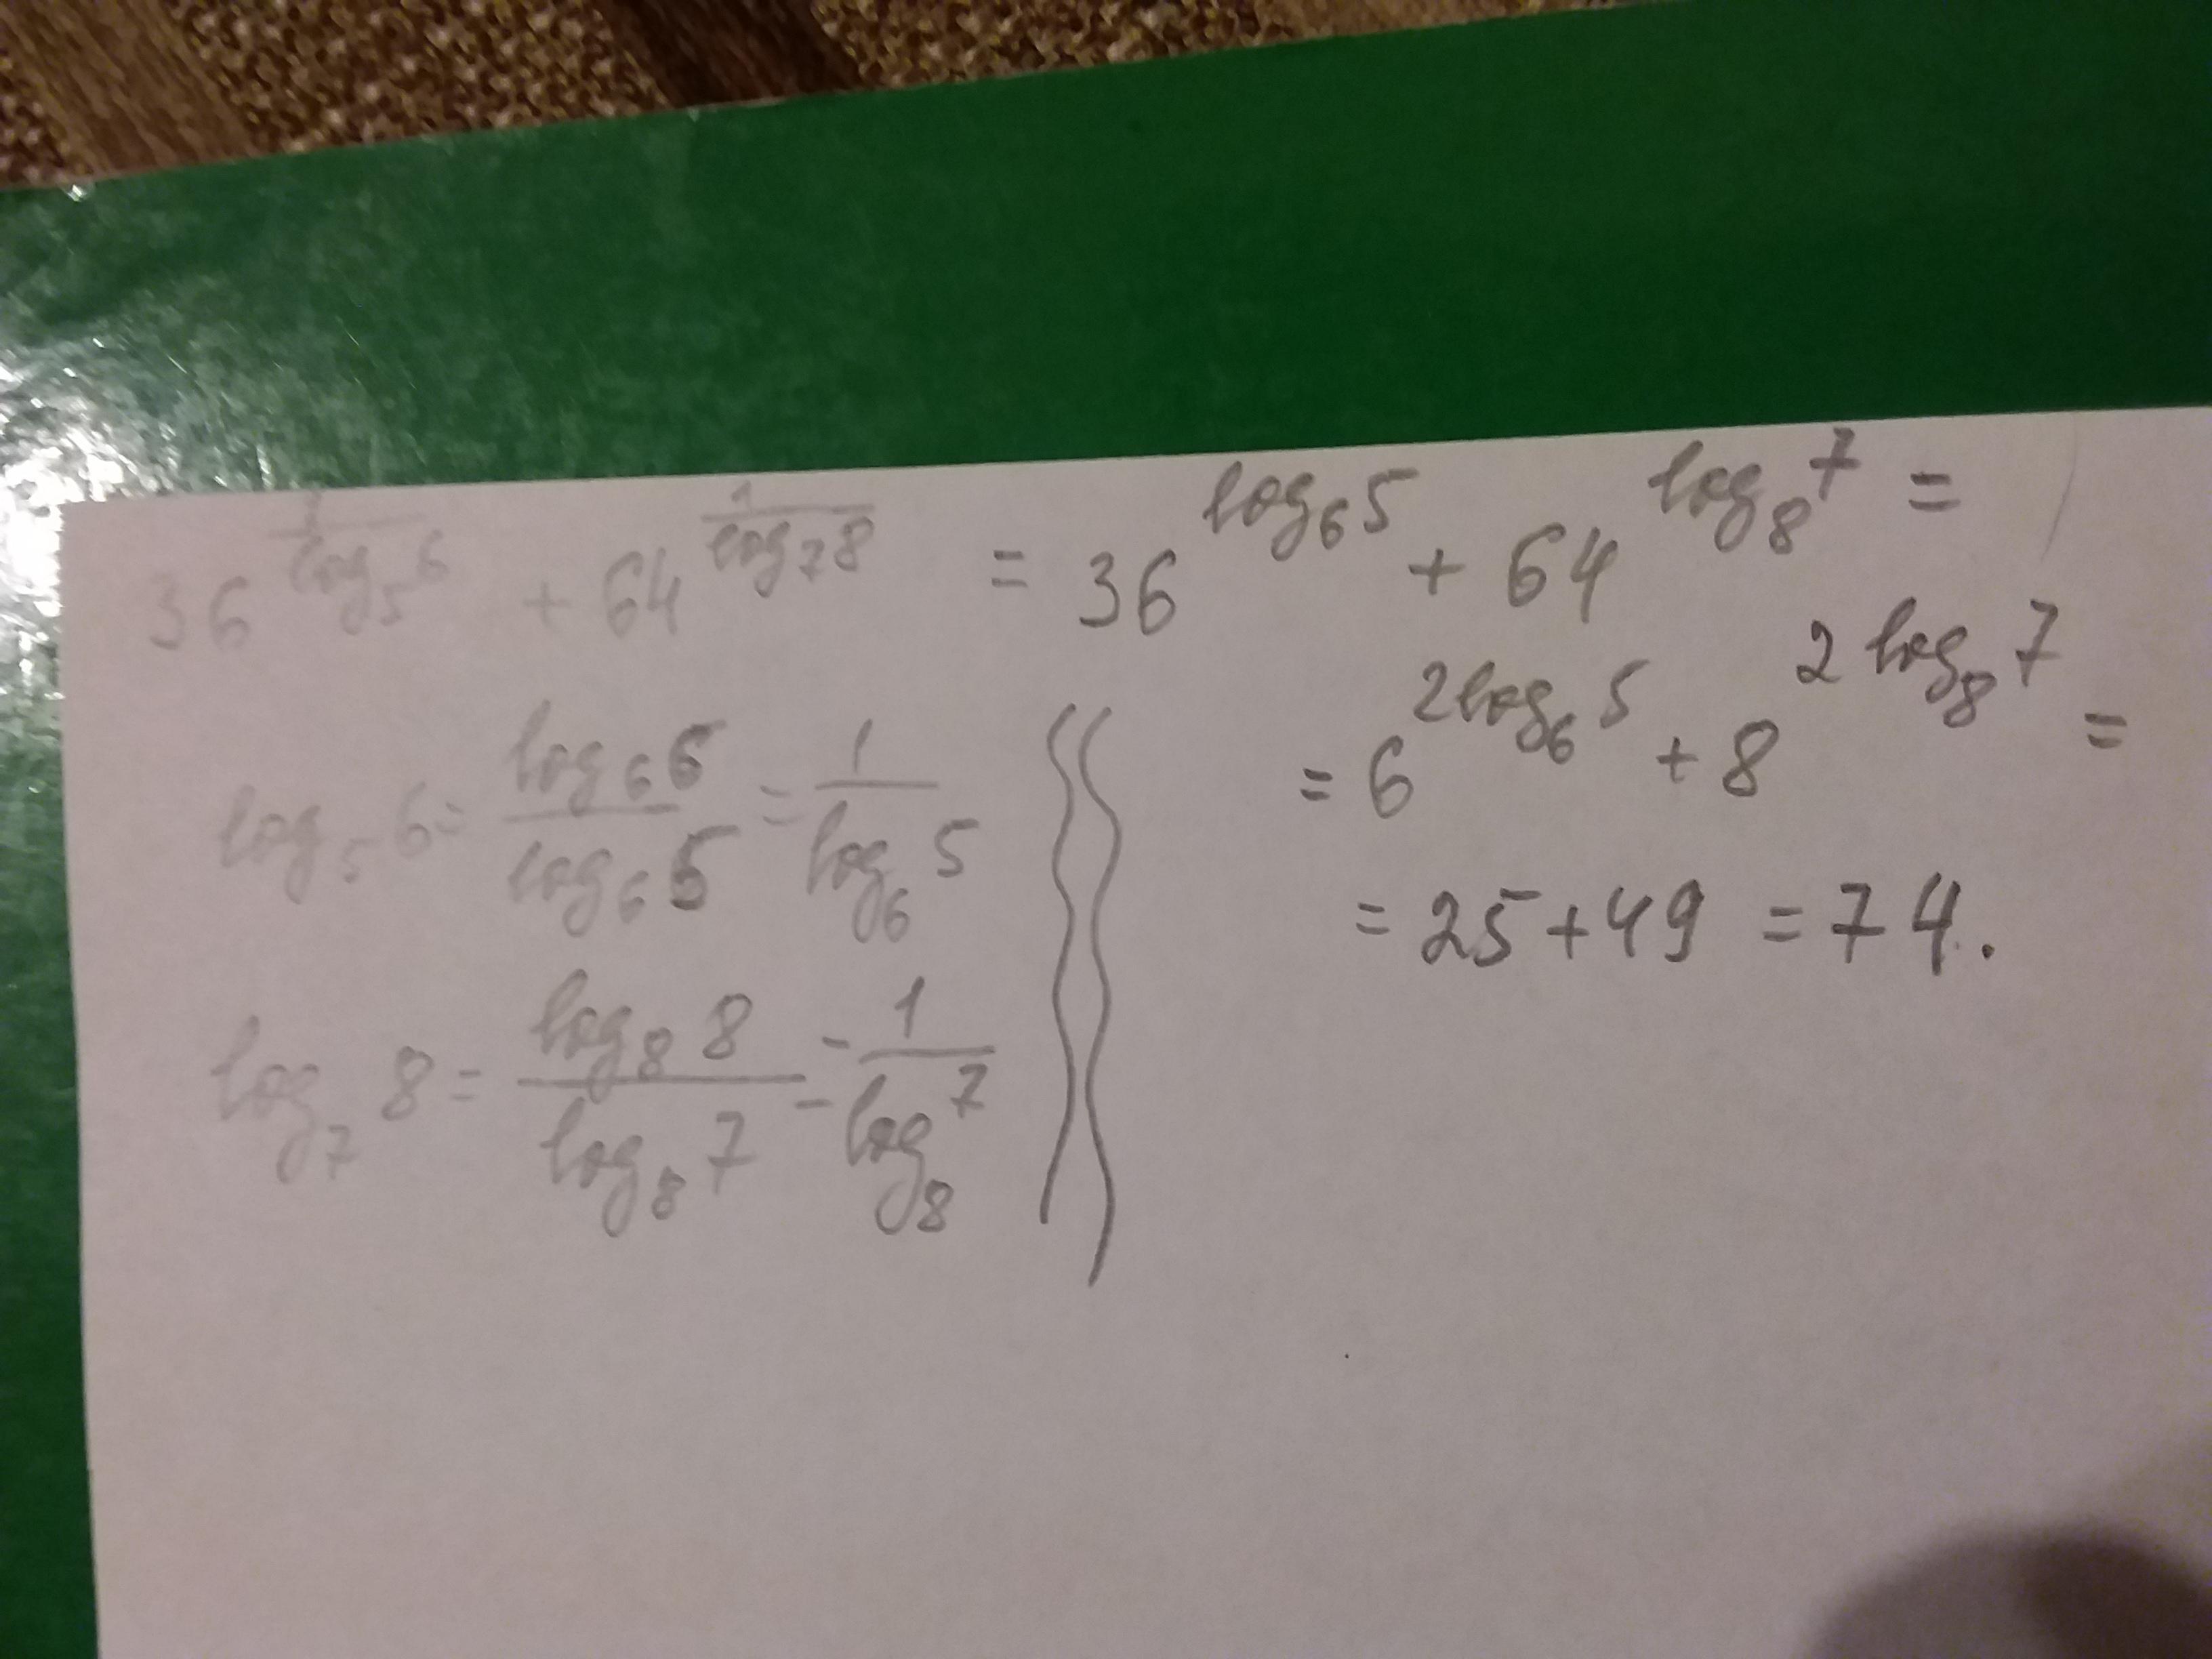 36^(1/log₅6) + 64^(1/log₇8) = 36^(log₆5) + 64^(log₈7) =
= 6^(2log₆5) + 8^(2log₈7) =
= 25 + 49 = 74.
log₅6 = log₆6/log₆5 = 1/log₆5
log₇8 = log₈8/log₈7 = 1/log₈7